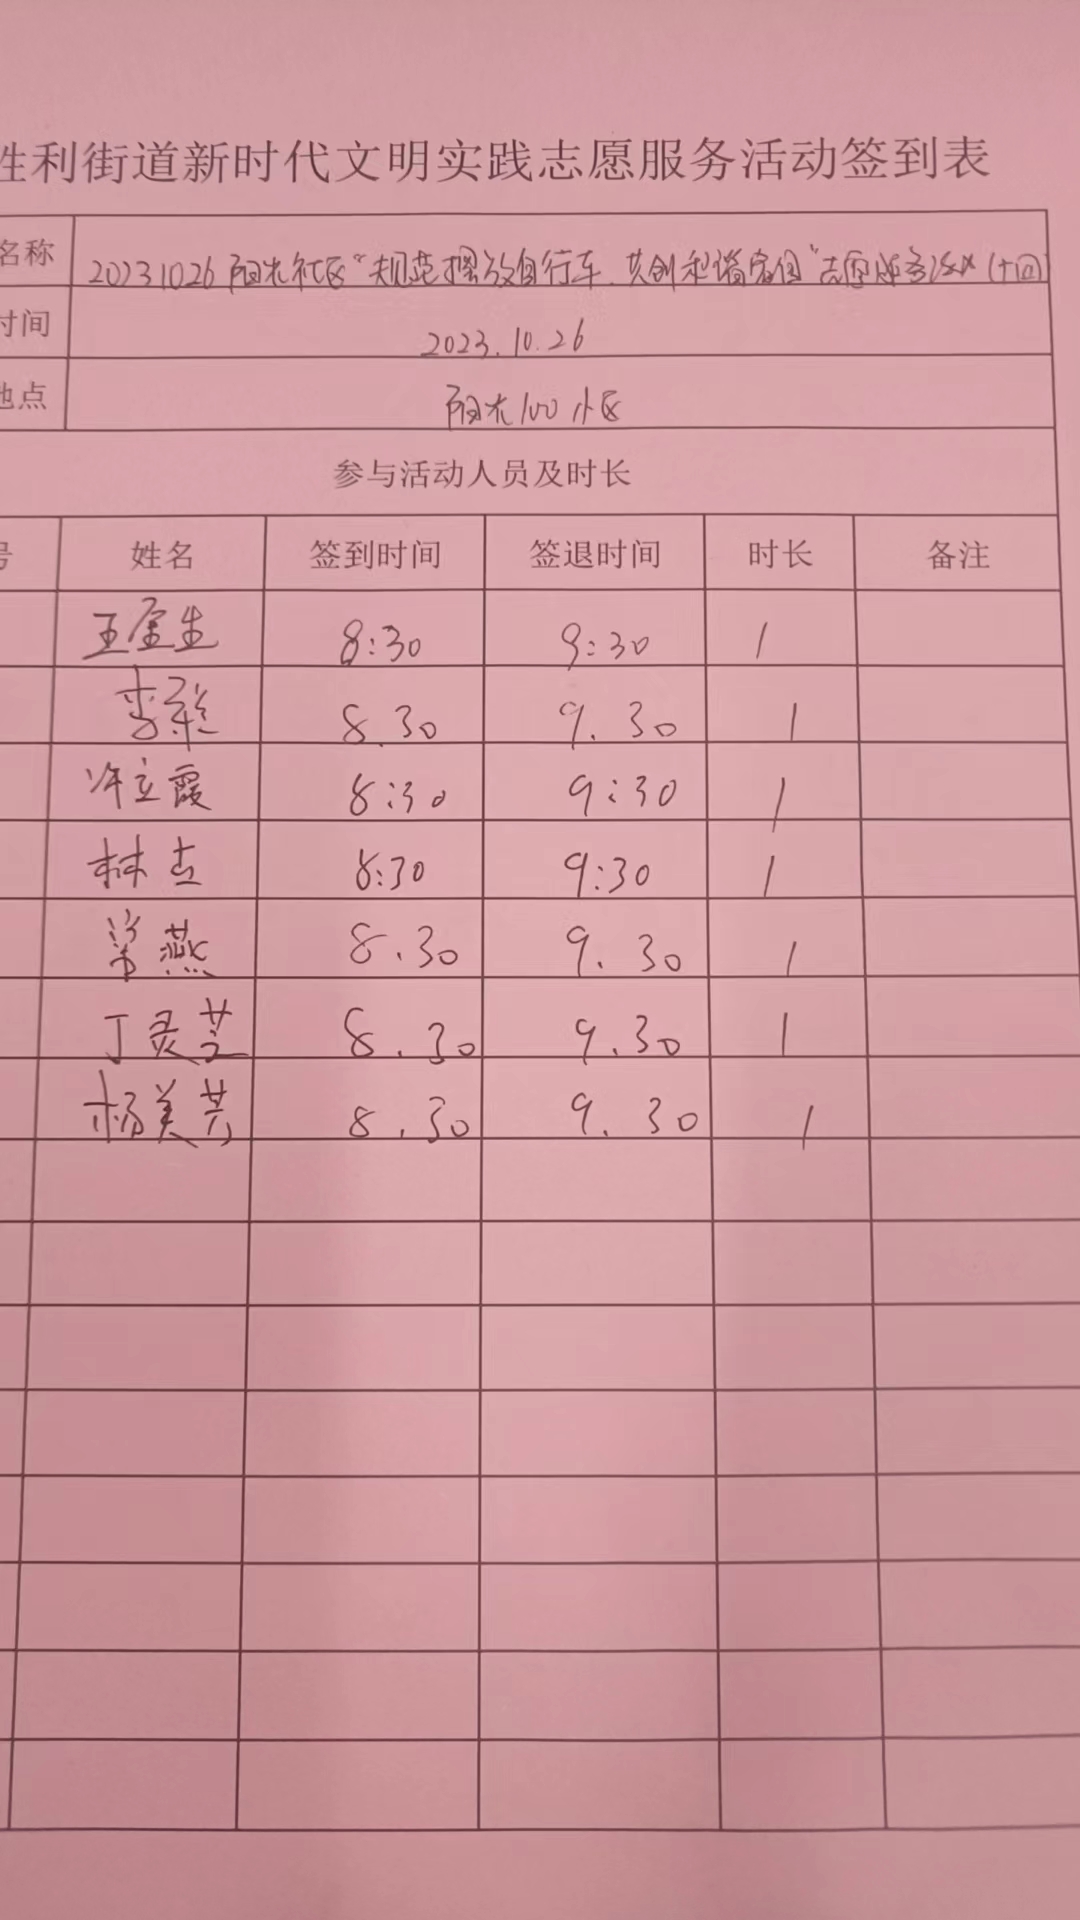 胜利街道新时代文明实践志愿服务活动签到表
名称 20231026阳光社区“规范摆放自行车、共创和谐家园”志愿服务活动(十四)
时间 2023.10.26
地点 阳光100小区
参与活动人员及时长
号 姓名 签到时间 签退时间 时长 备注
王金生 8:30 9:30 1
李彩 8.30 9.30 1
许立霞 8:30 9:30 1
林杰 8:30 9:30 1
常燕 8.30 9.30 1
丁灵芝 8.30 9.30 1
杨美芳 8.30 9.30 1